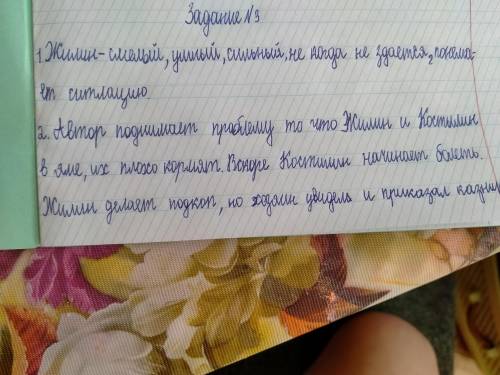 Задание №3
1. Жилин - смелый, умный, сильный, не когда не здается, понема-
ет ситлацию.
2. Автор поднимает проблему то что Жилин и Костилин
в яме, их плохо кормят. Вскоре Костилин начинает болеть.
Жилин делает подкоп, но хозяин увидель и приказал казни